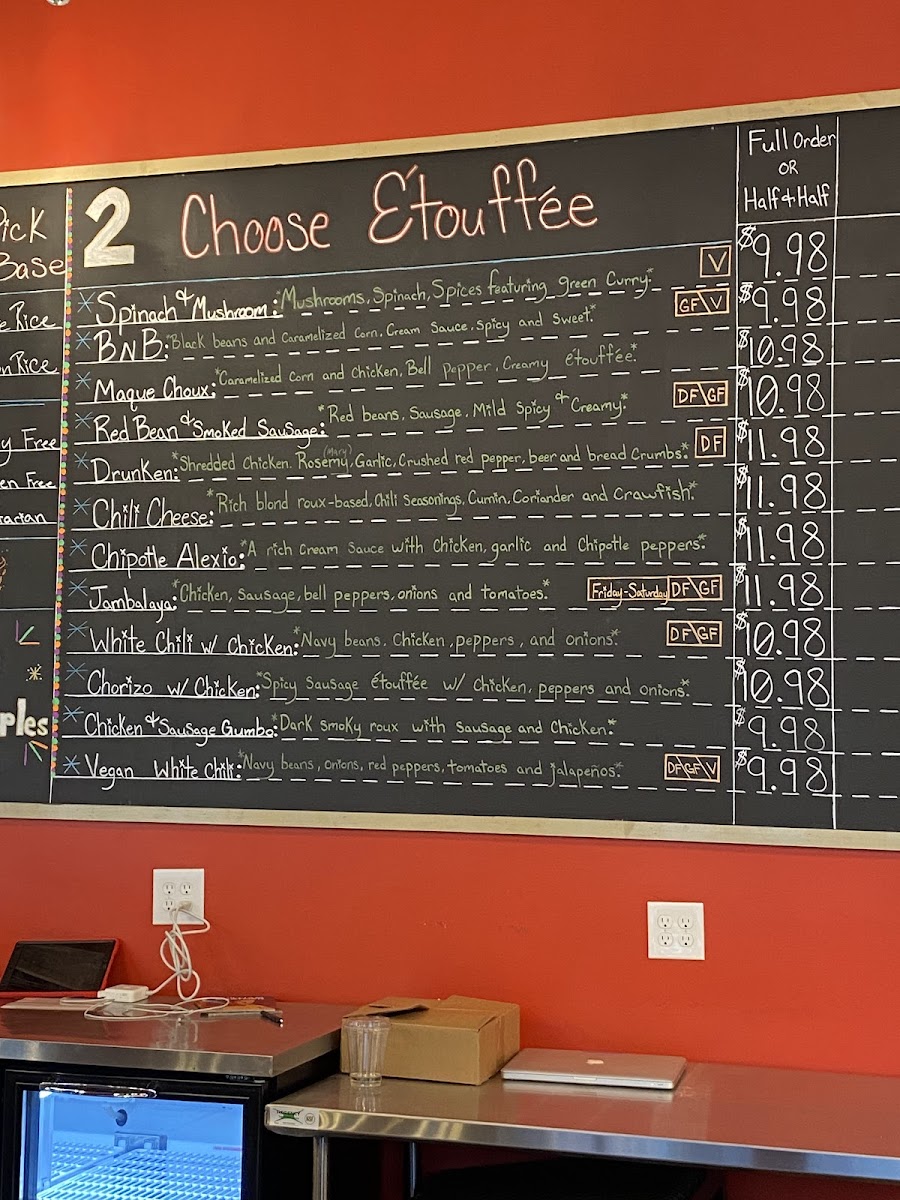 Pick
Base
e Rice
n Rice
y Free
en Free
tarian
ples
2 Choose Étouffée
Full Order
OR
Half & Half
* Spinach & Mushroom: *Mushrooms, Spinach, Spices featuring green Curry.* V $9.98
* BNB: *Black beans and Caramelized Corn, Cream Sauce, Spicy and Sweet.* GF\V $9.98
* Maque Choux: *Caramelized Corn and Chicken, Bell Pepper, Creamy étouffée.* $10.98
* Red Bean & Smoked Sausage: *Red beans, Sausage, Mild Spicy & Creamy.* DF\GF $10.98
* Drunken: *Shredded Chicken, Rosemy (Mary), Garlic, Crushed red pepper, beer and bread Crumbs.* DF $11.98
* Chili Cheese: *Rich blond roux-based, Chili Seasonings, Cumin, Coriander and Crawfish.* $11.98
* Chipotle Alexio: *A rich Cream Sauce with Chicken, garlic and Chipotle peppers.* $11.98
* Jambalaya: *Chicken, Sausage, bell peppers, onions and tomatoes.* Friday-Saturday DF\GF $11.98
* White Chili w/ Chicken: *Navy beans, Chicken, peppers, and onions.* DF\GF $10.98
* Chorizo w/ Chicken: *Spicy Sausage étouffée w/ Chicken, peppers and onions.* $10.98
* Chicken & Sausage Gumbo: *Dark Smoky roux with Sausage and Chicken.* $9.98
* Vegan White Chili: *Navy beans, onions, red peppers, tomatoes and jalapeños.* DF\GF\V $9.98